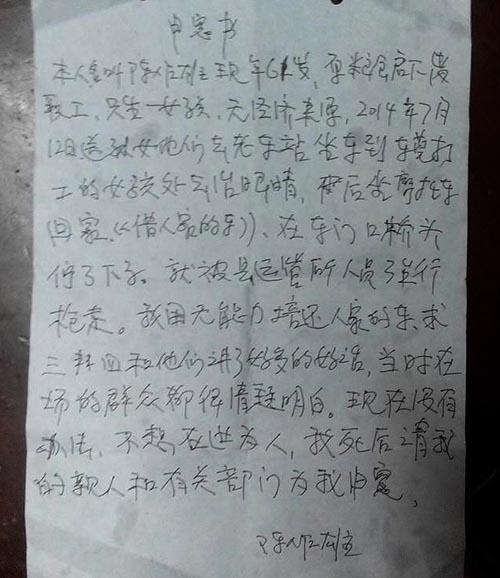 申冤书
本人名叫陈 柱现年61岁,原粮食局下岗
职工,只生一女孩,无经济来源,2014年7月
12日送 女他们去老车站坐车到 打
工的女孩处去治眼睛,而后坐摩托车
回家,《借人家的车》、在东门口桥头
停了下子。就被县运管所人员强行
抢走。我因无能力培还人家的车,求
三 四和他们讲了好多的好话,当时在
场的群众都很清楚明白。现在没有
办法,不想在世为人,我死后请我
的亲人和有关部门为我申冤,
陈 柱